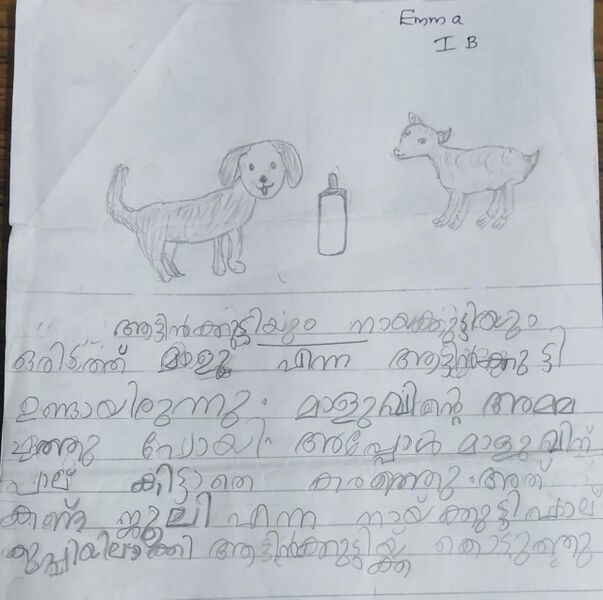 Emma
I B
ആട്ടിൻക്കുട്ടിയും നായക്കുട്ടിയും
ഒരിടത്ത് മാളു എന്ന ആട്ടിൻക്കുട്ടി
ഉണ്ടായിരുന്നു. മാളുവിന്റെ അമ്മ
ചത്തു പോയി. അപ്പോൾ മാളുവിന്
പാല് കിട്ടാതെ കരഞ്ഞു. അത്
കണ്ട ജൂലി എന്ന നായ്ക്കുട്ടി പാല്
കുപ്പിയിലാക്കി ആട്ടിൻക്കുട്ടിയ്ക്ക് കൊടുത്തു